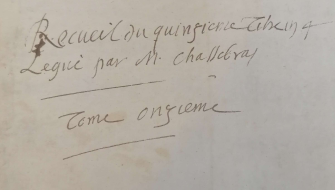 Recueil du quinzieme
Legué par M. Chassebras
Tome onzieme